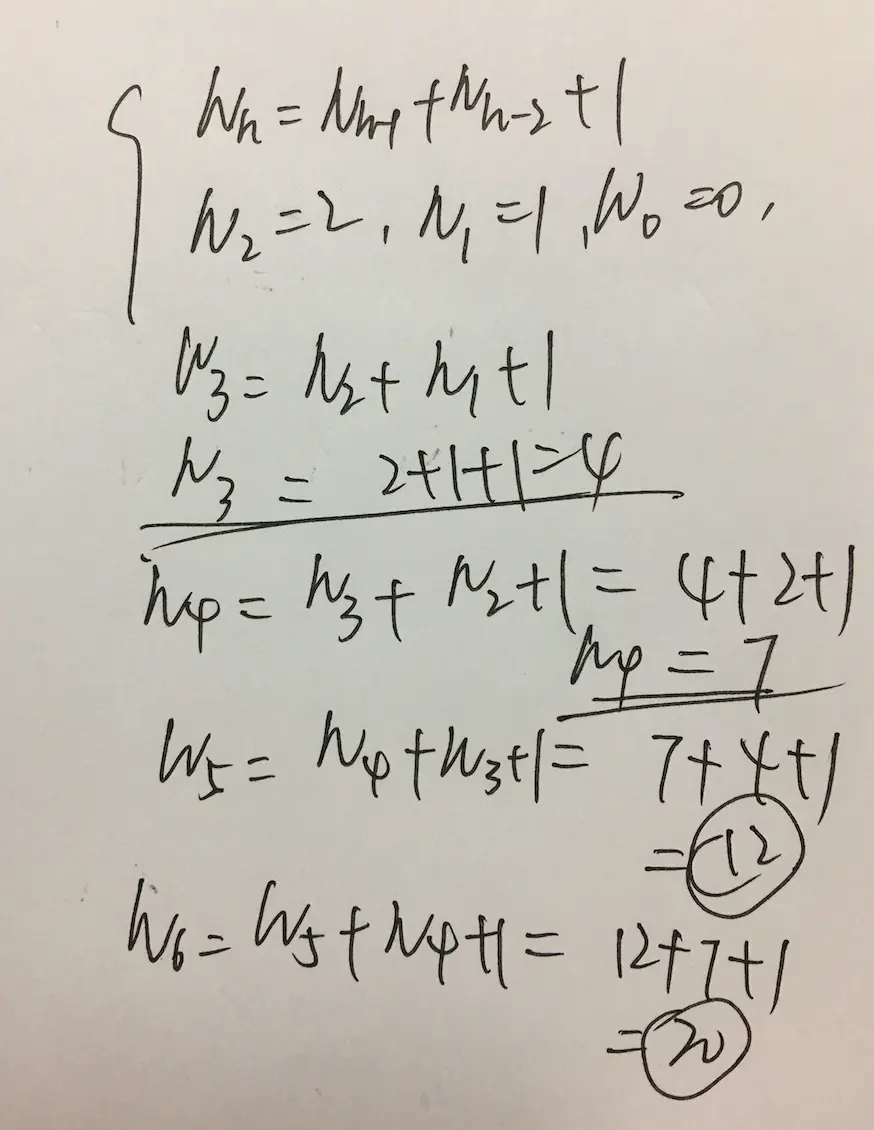 N_n = N_{n-1} + N_{n-2} + 1
N_2 = 2, N_1 = 1, N_0 = 0,
N_3 = N_2 + N_1 + 1
N_3 = 2+1+1=4
N_4 = N_3 + N_2 + 1 = 4+2+1
N_4 = 7
N_5 = N_4 + N_3 + 1 = 7+4+1
= 12
N_6 = N_5 + N_4 + 1 = 12+7+1
= 20